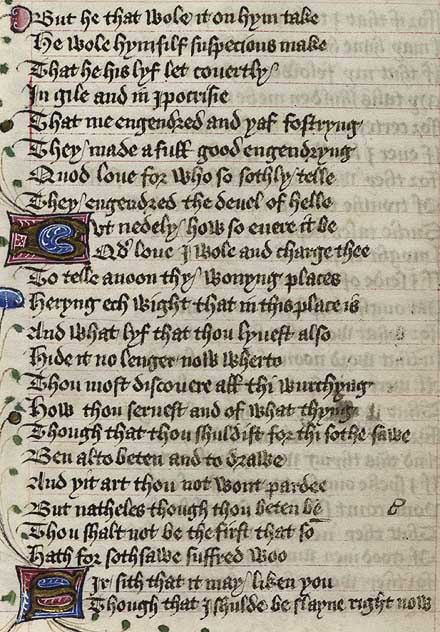 But he that wole it on hym take
He wole hymsilf suspecious make
That he his lyf let covertly
In gile and in Ipocrisie
That me engendred and yaf fostryng
They made a full good engendryng
Quod love for who so sothly telle
They engendred the devel of helle
But nedely how so evere it be
Qd love I wole and charge thee
To telle anoon thy wonyng places
Heryng ech wight that in this place is
And what lyf that thou lyvest also
Hide it no lenger now wherto
Thou most discovere all thi wurchyng
How thou servest and of what thyng
Though that thou shuldist for thi sothe sawe
Ben al to beten and to drawe
And yit art thou not wont pardee
But natheles though thou beten be
Thou shalt not be the first that so
Hath for sothsawe suffred woo
Sir sith that it may liken you
Though that I shulde be slayne right now